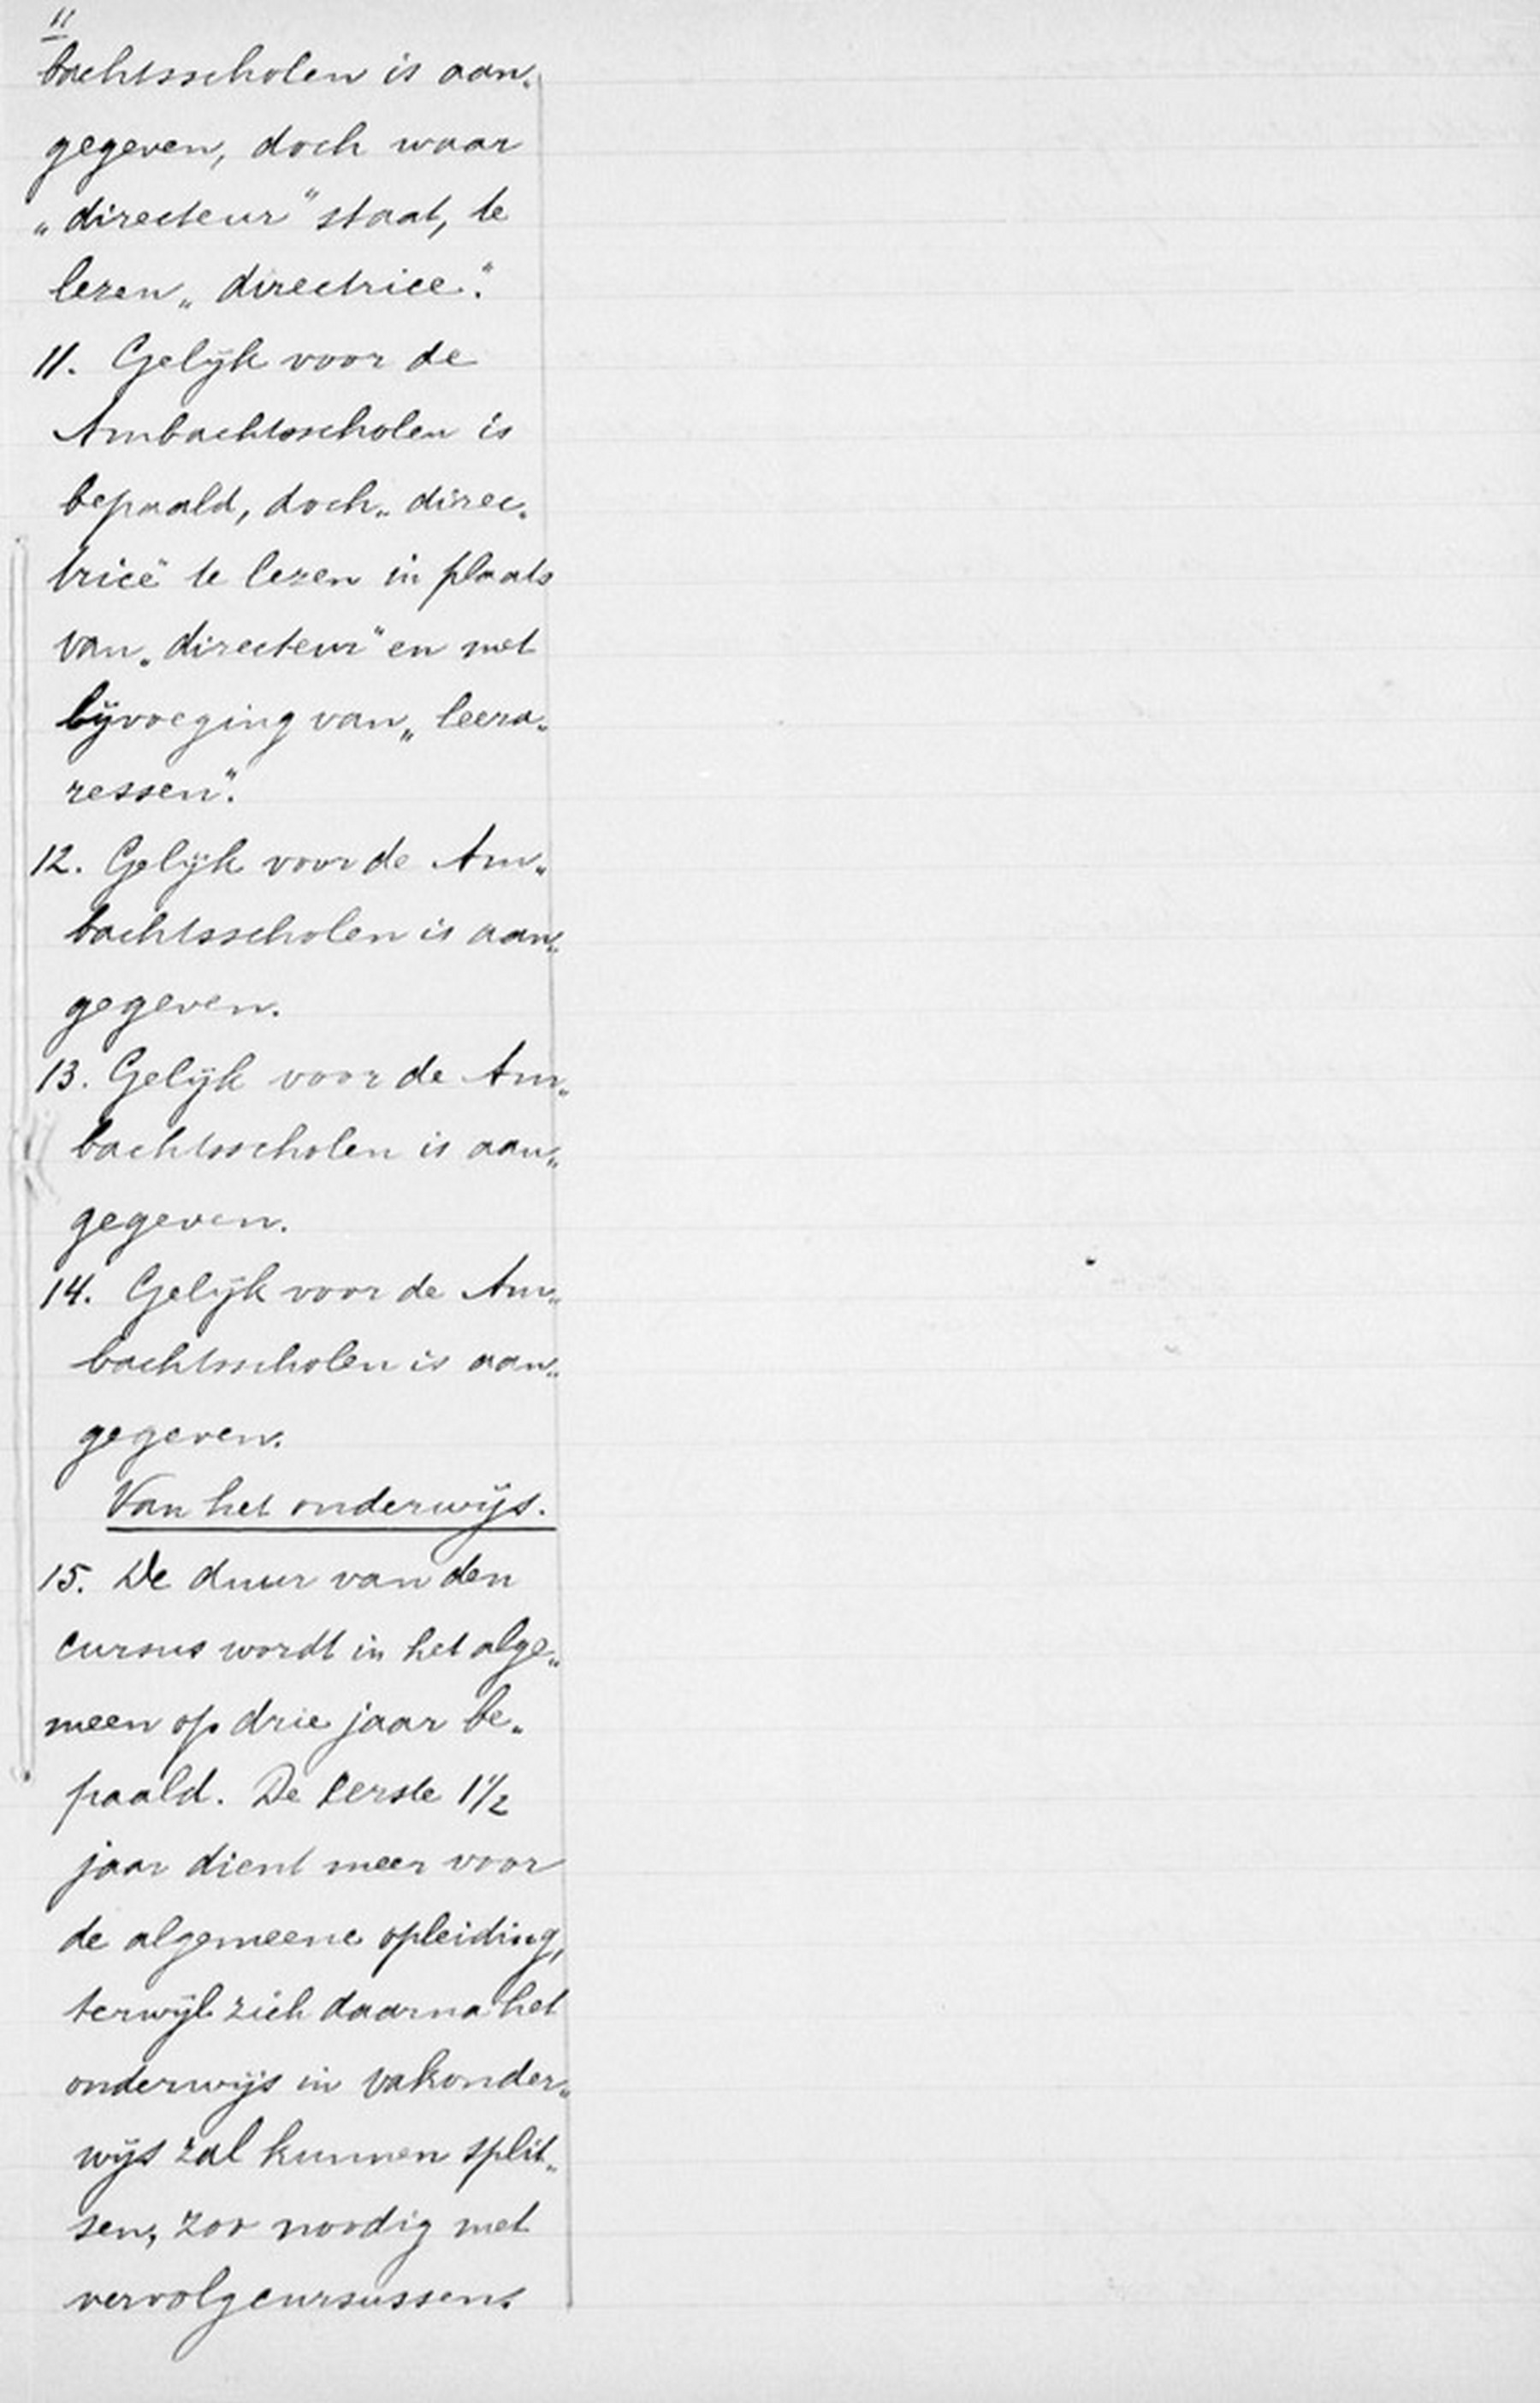 11
bachtsscholen is aan„
gegeven, doch waar
„directeur” staat, te
lezen „directrice.”
11. Gelijk voor de
Ambachtsscholen is
bepaald, doch „direc„
trice” te lezen in plaats
van „directeur” en met
bijvoeging van „leera„
ressen”.
12. Gelijk voor de Am„
bachtsscholen is aan„
gegeven.
13. Gelijk voor de Am„
bachtsscholen is aan„
gegeven.
14. Gelijk voor de Am„
bachtsscholen is aan„
gegeven.
Van het onderwijs.
15. De duur van den
cursus wordt in het alge„
meen op drie jaar be„
paald. De eerste 1½
jaar dient meer voor
de algemeene opleiding,
terwijl zich daarna het
onderwijs in vakonder„
wijs zal kunnen split„
sen, zoo noodig met
vervolgcursussen.